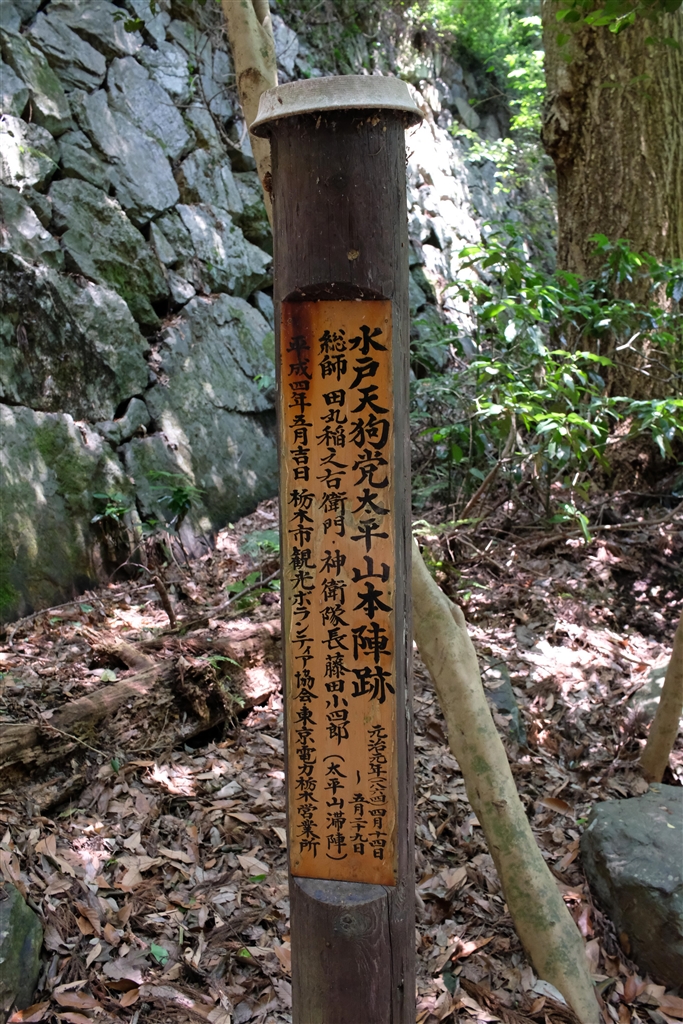 水戸天狗党太平山本陣跡
元治元年(一八六四)四月十四日
~五月二十九日
総師 田丸稲之右衛門・神衛隊長藤田小四郎(太平山滞陣)
平成四年五月吉日 栃木市観光ボランティア協会・東京電力栃木営業所